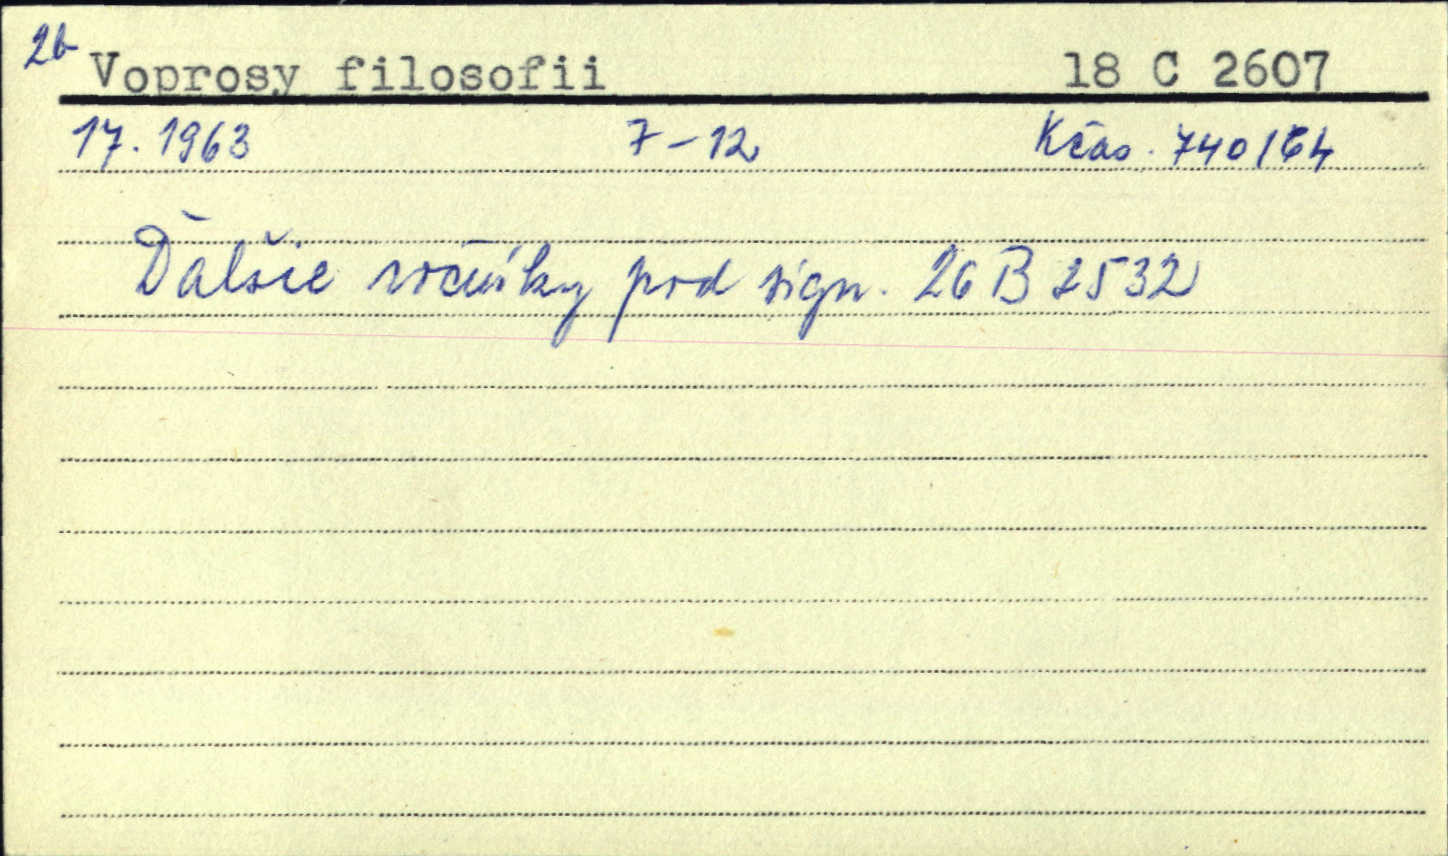 2b Voprosy filosofii 18 C 2607
17. 1963 7-12 Kčas. 740/64
Ďalšie ročníky pod sign. 26 B 2532